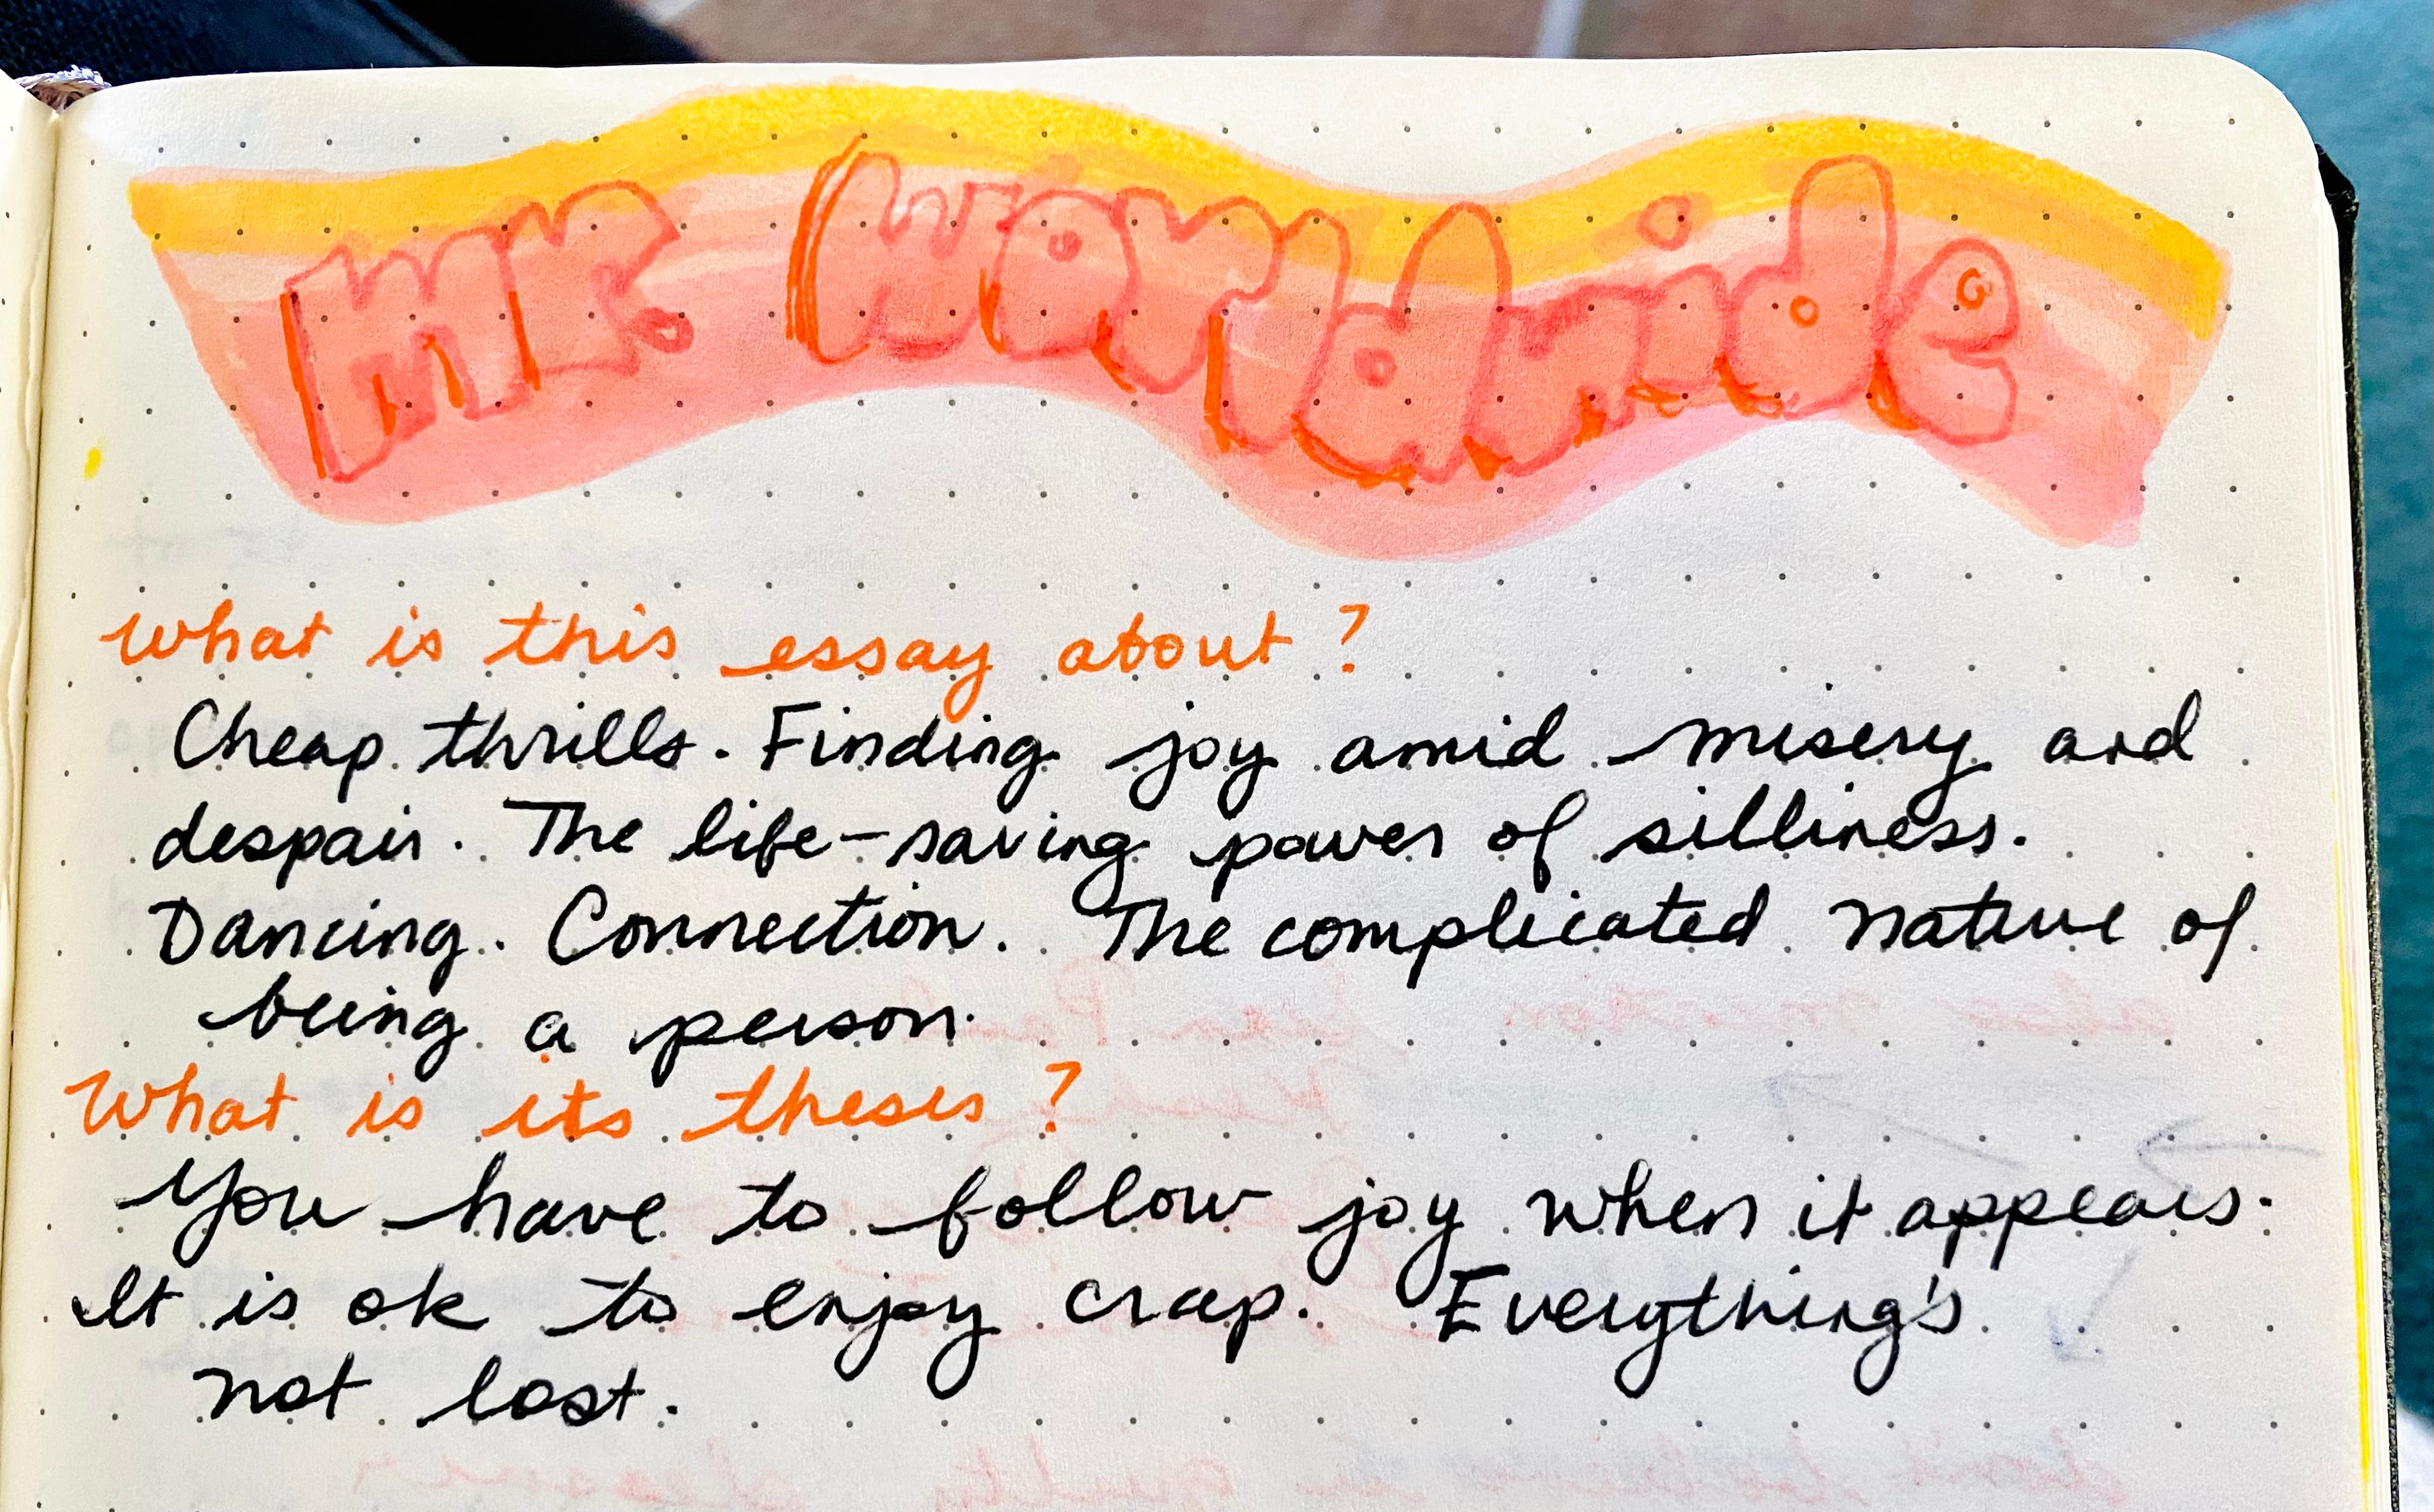 Mr. Worldwide
What is this essay about?
Cheap thrills. Finding joy amid misery and
despair. The life-saving power of silliness.
Dancing. Connection. The complicated nature of
being a person.
What is its thesis?
You have to follow joy when it appears.
It is ok to enjoy crap. Everything's
not lost.